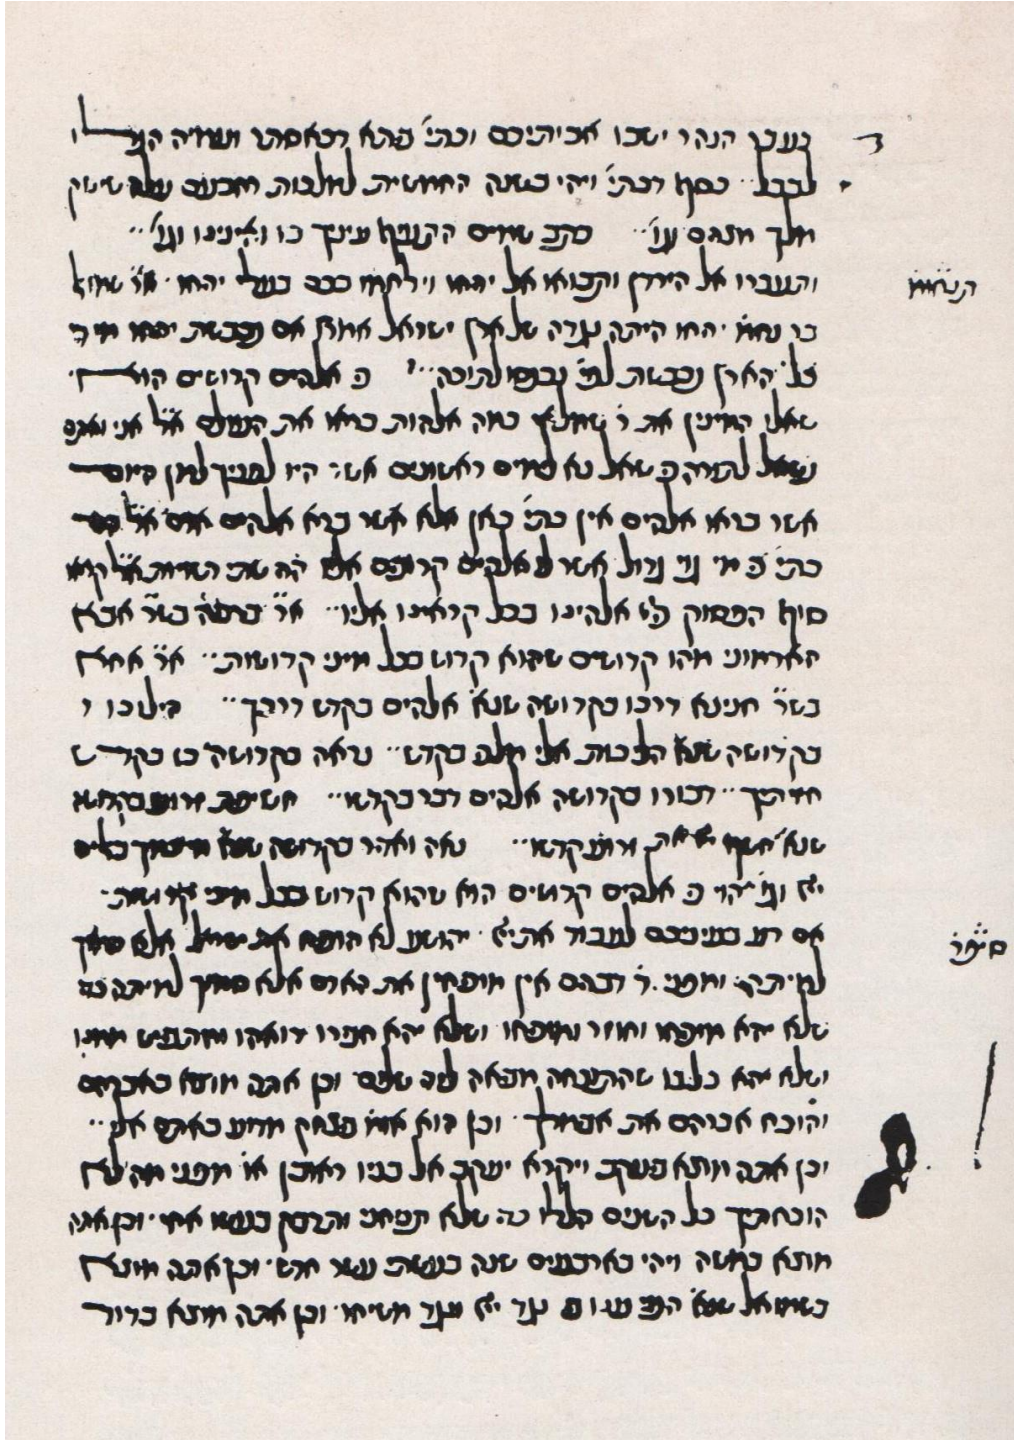 בעבר הנהר ישבו אבותיכם וכתי׳
לבבל ׃ כסף דכתי׳ ויהי בשנה החמישית למלכות רחבעם עלה שישק
מלך מצרים וגו׳ ׃ כתב שמים התעיף עיניך בו ואיננו וגו׳ ׃
ותעברו אל הירדן ותבואו אל יריחו וילחמו בכם בעלי יריחו ׃ א״ר שמואל
בר נחמן יריחו היתה נגרה של ארץ ישראל אמרין אם נכבשת יריחו מיד
כל הארץ נכבשת לפי׳ נכנסו לתוכה ׃ כי אלהים קדושים הוא
שאלו המינין את ר׳ שמלאי כמה אלהות בראו את העולם א״ל אני ואתם
נשאל לתורה כי שאל נא לימים ראשונים אשר היו לפניך למן היום
אשר בראו אלהים אין כתי׳ כאן אלא אשר ברא אלהים אדם
כתי׳ כי מי גוי גדול אשר לו אלהים קרובים אליו
סוף הפסוק כיי אלהינו בכל קראינו אליו ׃ א״ר ברכיה בש״ר אבא
הארמוני מהו קדושים שהוא קדוש בכל מיני קדושות ׃ א״ר אחא
בש״ר חנינא דרכו בקדושה שנא׳ אלהים בקדש דרכך ׃ הילוכו
בקדושה שנא׳ הליכות אלי מלכי בקדש ׃ נראה בקדושה כן בקדש
חזיתיך ׃ דבורו בקדושה אלהים דבר בקדשו ׃ חשיפת זרועו בקדושה
שנא׳ חשף יי את זרוע קדשו ׃ נאה ואדר בקדושה שנא׳ מי כמוך באלים
יי׳ וגו׳ הוי כי אלהים קדושים הוא שהוא קדוש בכל מיני קדושות ׃
אם רע בעיניכם לעבוד את יי׳ ׃ יהושע לא הוכיח את ישראל אלא סמוך
למיתתו ׃ ומפני ד׳ דברים אין מוכיחין את האדם אלא סמוך למיתה כדי
שלא יהא מוכיחו וחוזר ומוכיחו ושלא יהא חבירו רואהו ומתבייש ממנו
ושלא יהא בלבו שהתוכחה מביאה לידי שלום וכן אתה מוצא באברהם
והוכיח אברהם את אבימלך ׃ וכן הוא אומ׳ ביצחק מדוע באתם אלי ׃
וכן אתה מוצא ביעקב ויקרא יעקב אל בניו ראובן או׳ מפני מה לא
הוכחתיך כל השנים הללו כדי שלא תניחני ותדבק בעשו אחי ׃ וכן אתה
מוצא במשה ויהי בארבעים שנה בעשתי עשר חדש ׃ וכן אתה מוצא
בשמואל שנא׳ הנני ענו בי נגד יי׳ ונגד משיחו ׃ וכן אתה מוצא בדוד